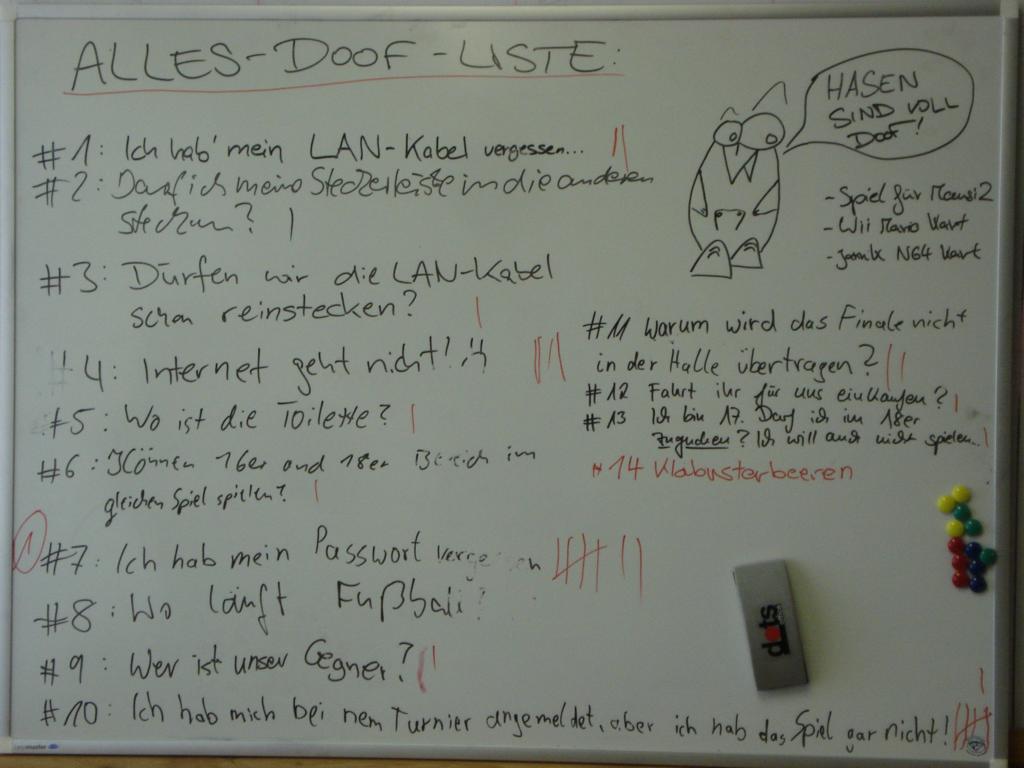 ALLES-DOOF-LISTE:
#1: Ich hab' mein LAN-Kabel vergessen...
#2: Darf ich meine Steckerleiste in die anderen
stecken?
#3: Dürfen wir die LAN-Kabel
schon reinstecken?
#4: Internet geht nicht!
#5: Wo ist die Toilette?
#6: Können 16er und 18er Bereich im
gleichen Spiel spielen?
#7: Ich hab mein Passwort vergessen
#8: Wo läuft Fußball?
#9: Wer ist unser Gegner?
#10: Ich hab mich bei nem Turnier angemeldet, aber ich hab das Spiel gar nicht!
HASEN
SIND VOLL
DOOF!
- Spiel für
- Wii Mario Kart
- N64 Kart
#11 Warum wird das Finale nicht
in der Halle übertragen?
#12 Fahrt ihr für uns einkaufen?
#13 Ich bin 17. Darf ich im 18er
zugucken? Ich will auch nicht spielen...
#14 Klabusterbeeren
dots